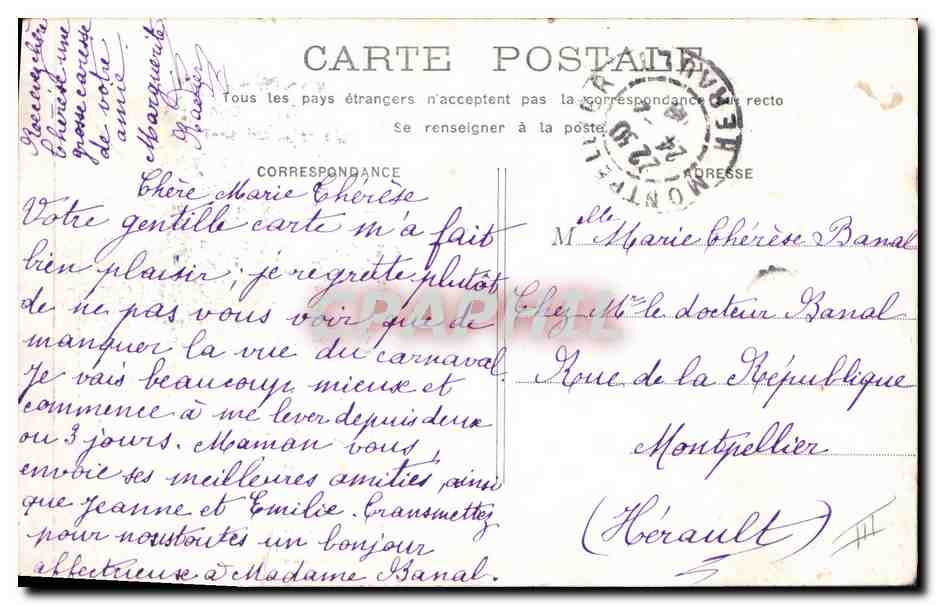 CARTE POSTALE
Tous les pays étrangers n'acceptent pas la correspondance au recto
Se renseigner à la poste
CORRESPONDANCE
Chère Marie Thérèse
Votre gentille carte m'a fait
bien plaisir, je regrette plutôt
de ne pas vous voir que de
manquer la vue du carnaval.
Je vais beaucoup mieux et
commence à me lever depuis deux
ou 3 jours. Maman vous
envoie ses meilleures amitiés, ainsi
que Jeanne et Emilie. Transmettez
pour nous toutes un bonjour
affectueux à Madame Banal.
Recevez chère
Thérèse une
grosse caresse
de votre
amie
Marguerite
ADRESSE
Melle Marie Thérèse Banal
Chez Mr le docteur Banal
Roue de la République
Montpellier
(Hérault)
III
MONTPELLIER
HERAULT
22 30
24
CPAPHIL